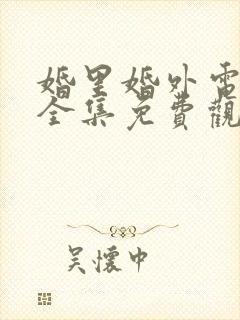 婚里婚外電
全集免費觀
吴懷中